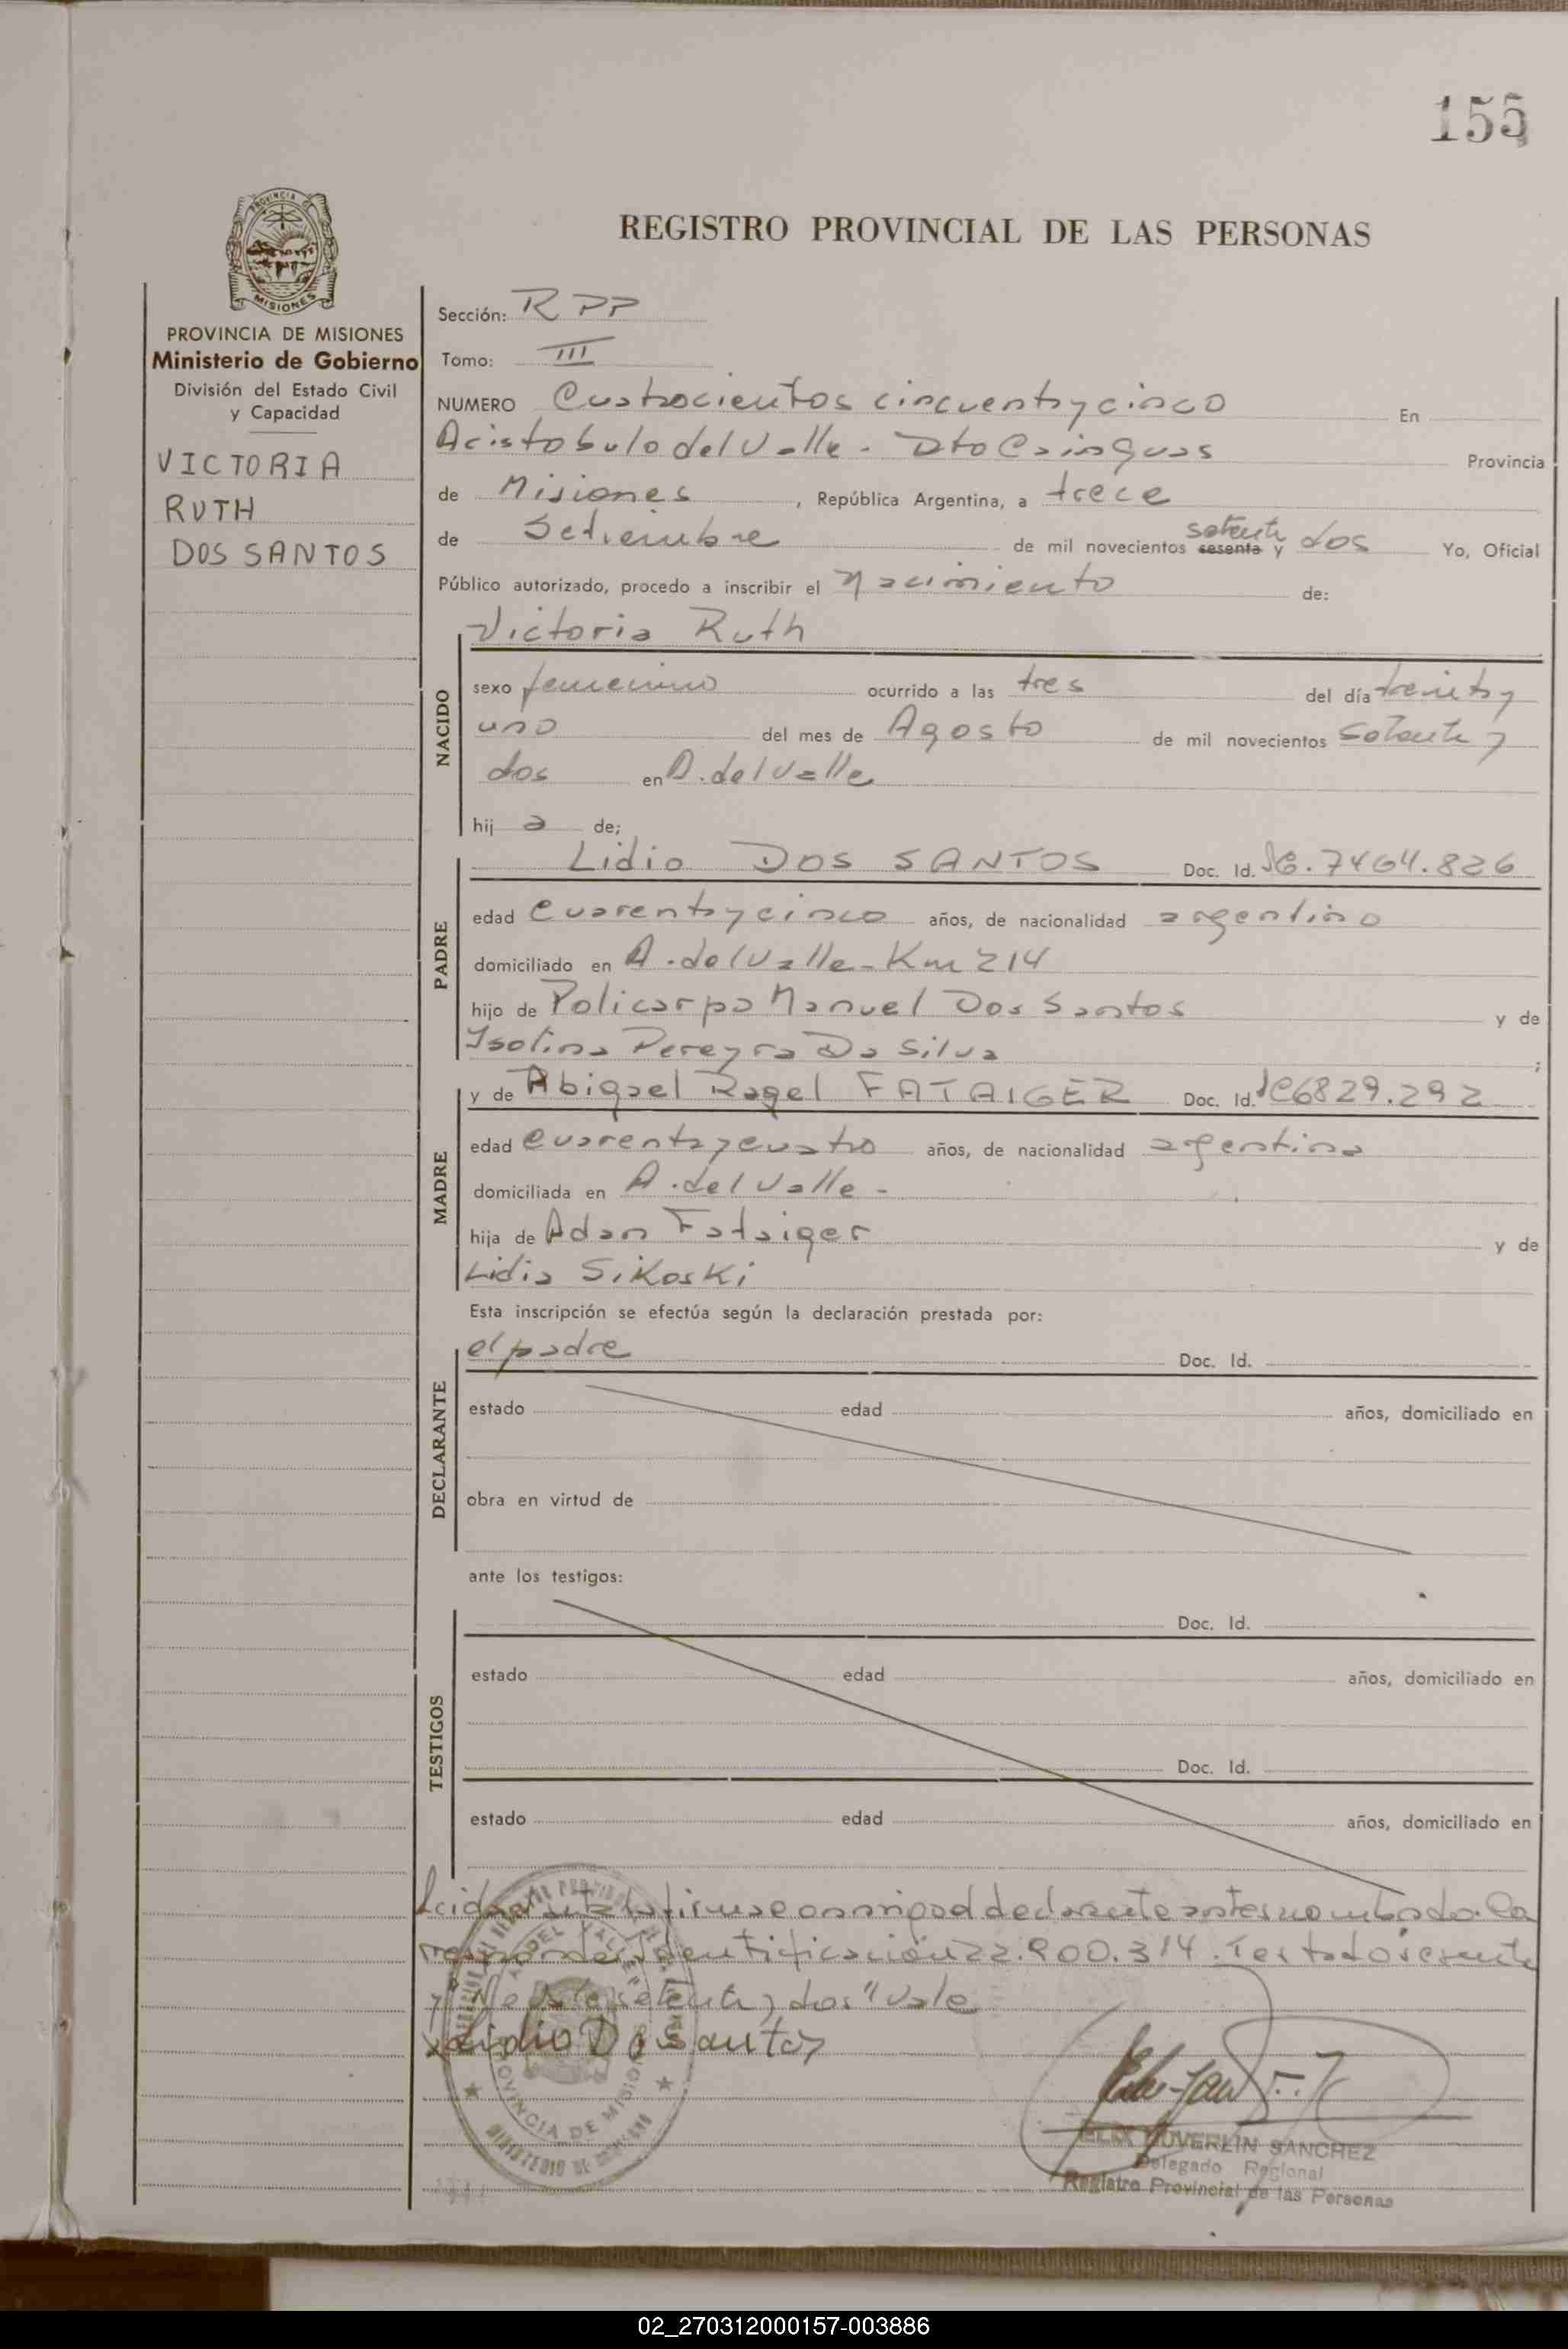 155
REGISTRO PROVINCIAL DE LAS PERSONAS
PROVINCIA DE MISIONES
Ministerio de Gobierno
División del Estado Civil
y Capacidad
VICTORIA
RUTH
DOS SANTOS
Sección: RPP
Tomo: III
NUMERO Cuatrocientos cincuenta y cinco En
Aristobulo del Valle - Dto Cainguas Provincia
de Misiones, República Argentina, a trece
de Setiembre de mil novecientos sesenta setenta y dos Yo, Oficial
Público autorizado, procedo a inscribir el nacimiento de:
NACIDO
Victoria Ruth
sexo femenino ocurrido a las tres del día treinta y
uno del mes de Agosto de mil novecientos setenta y
dos en A. del Valle
hij a de;
PADRE
Lidio DOS SANTOS Doc. Id. 7464.826
edad cuarenta y cinco años, de nacionalidad argentino
domiciliado en A. del Valle - Km 214
hijo de Policarpo Manuel Dos Santos y de
Isolina Pereyra Da Silva ;
MADRE
y de Abigael Ragel FATAIGER Doc. Id. 6829.292
edad cuarenta y cuatro años, de nacionalidad argentina
domiciliada en A. del Valle -
hija de Adan Fataiger y de
Lidia Sikoski
Esta inscripción se efectúa según la declaración prestada por:
DECLARANTE
el padre Doc. Id.
estado edad años, domiciliado en
obra en virtud de
ante los testigos:
TESTIGOS
Doc. Id.
estado edad años, domiciliado en
Doc. Id.
estado edad años, domiciliado en
Leida acta la firma conmigo el declarante antes nombrado. La
identificación 22.900.314. Testado sesenta
y setenta y dos" Vale
Lidio Do Santos
PROVINCIA DE MISIONES
SANCHEZ
Delegado Regional
Registro Provincial de las Personas
02_270312000157-003886